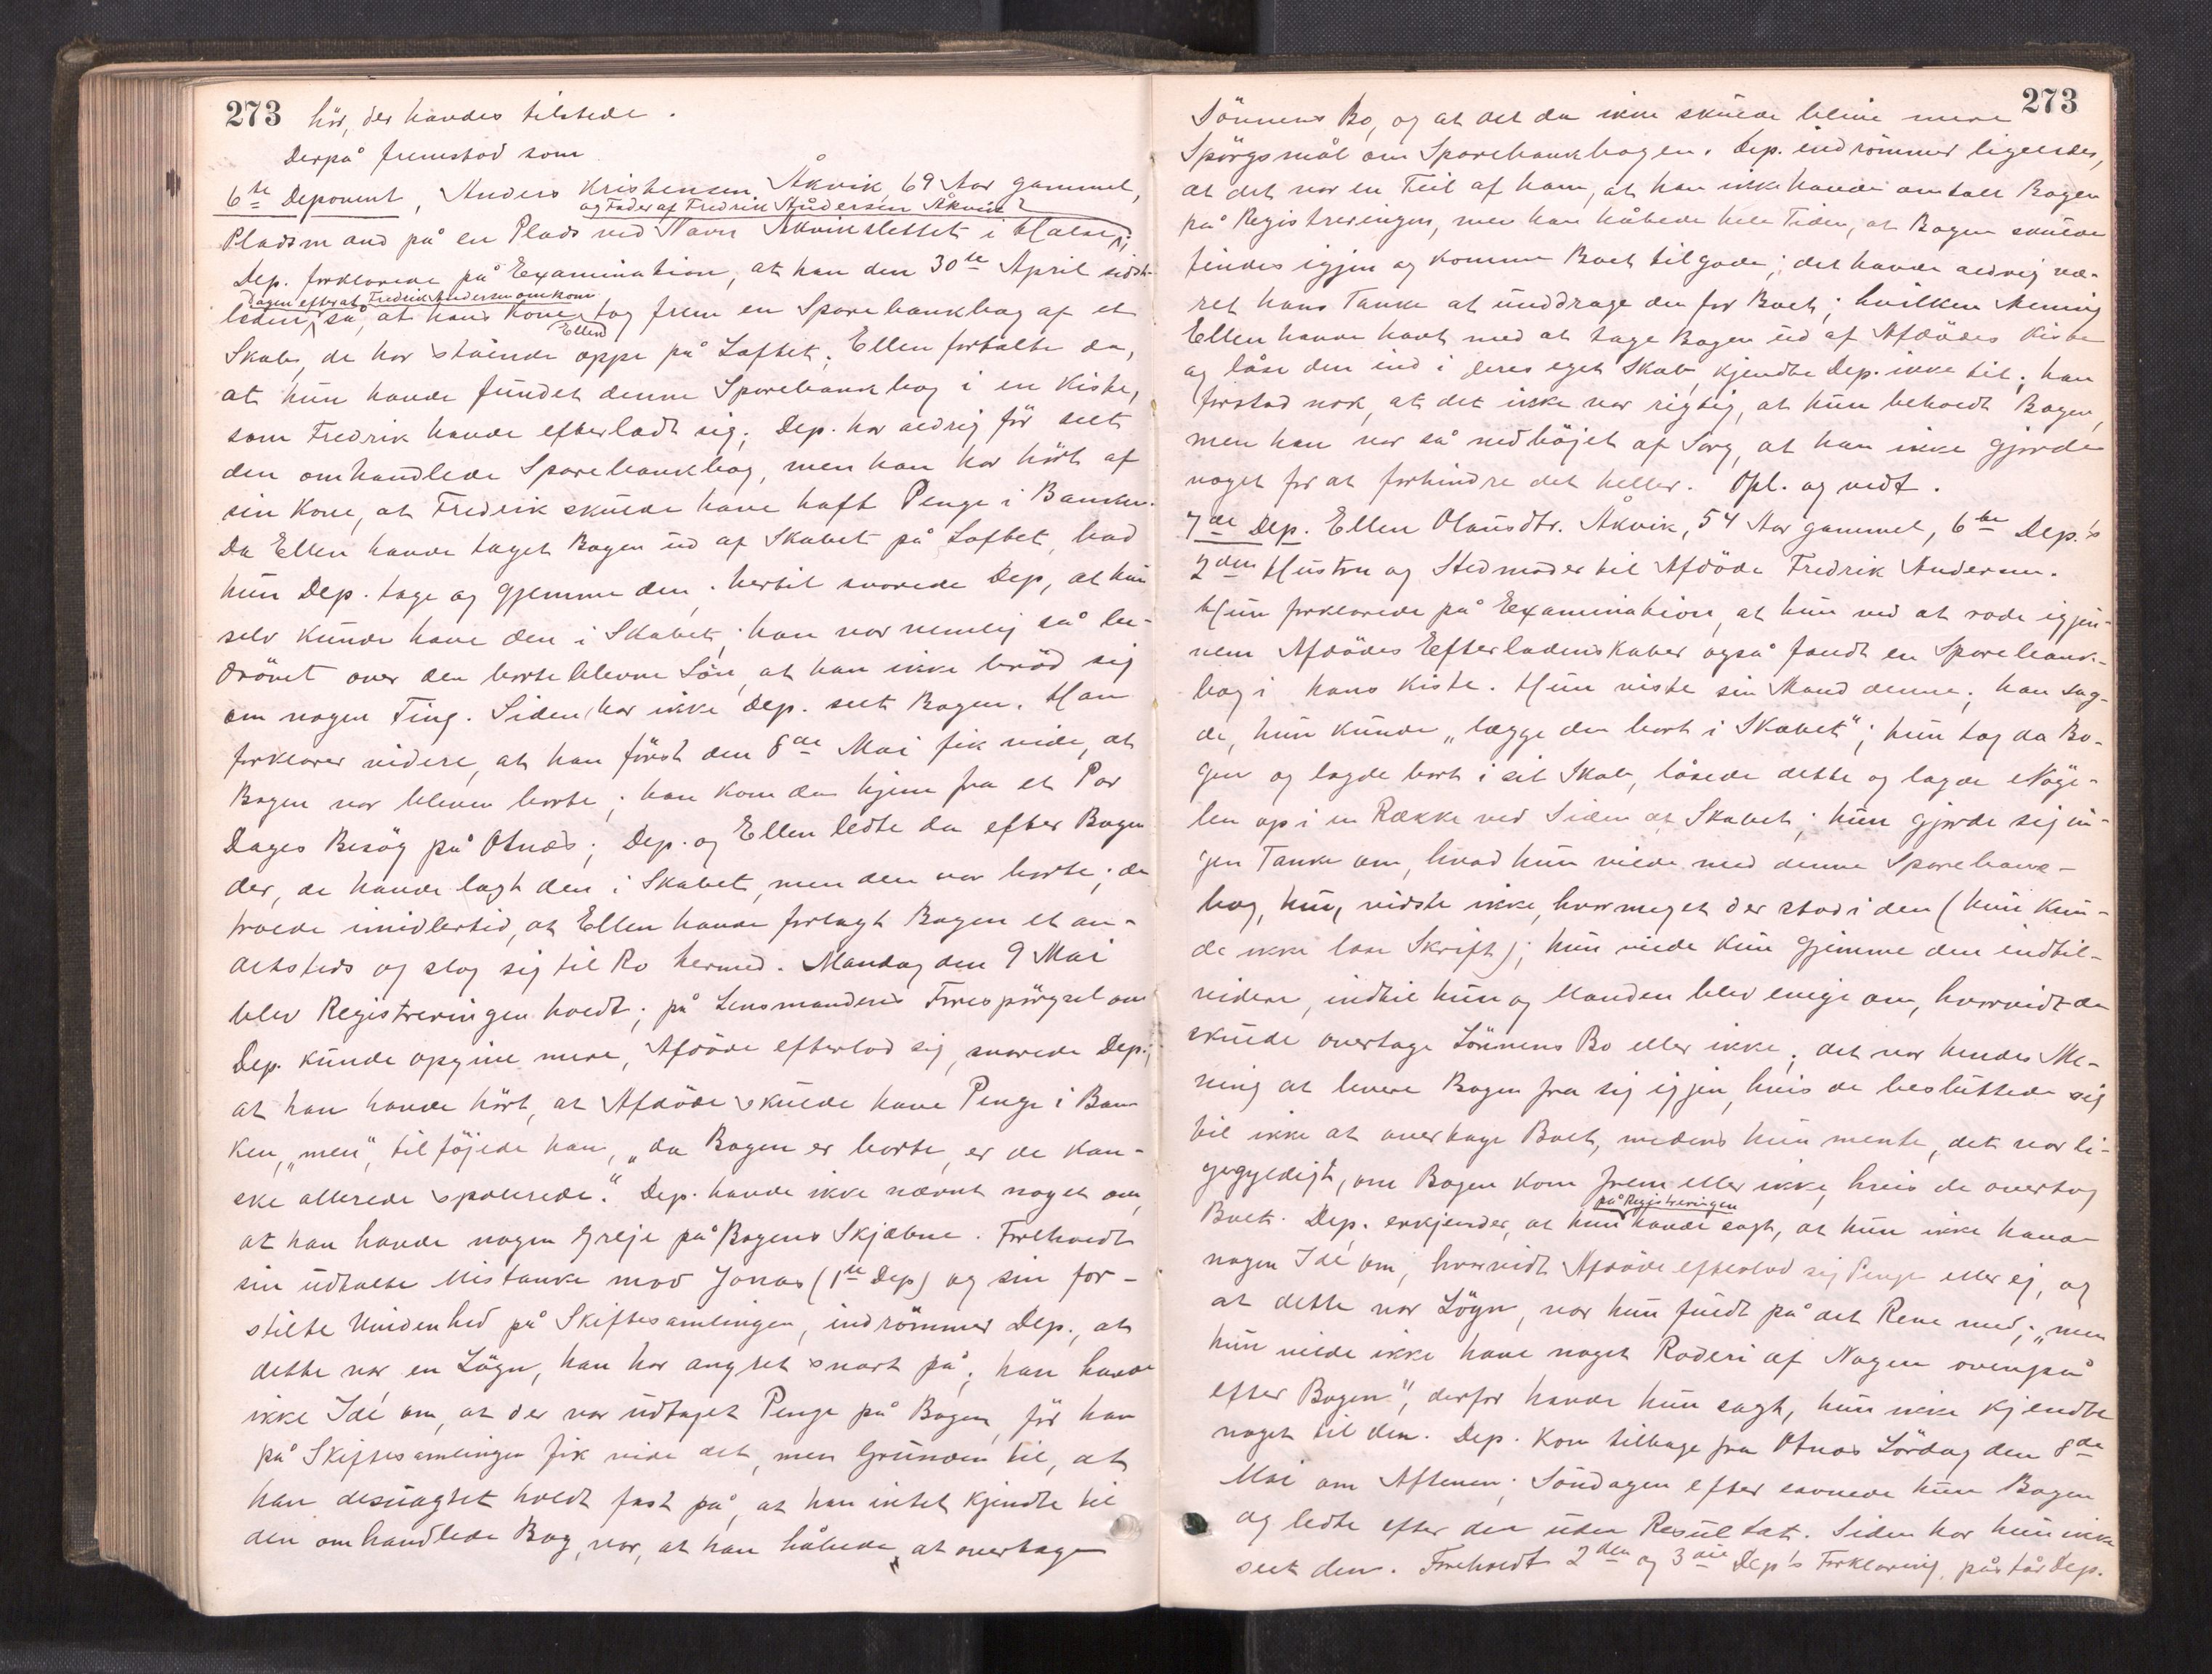 273
hör, der havdes tilstede.
Derpå fremstod som
6te Deponent, Anders Kristensen Åkvik, 69 Aar gammel,
og Fader af Fredrik Andersen Åkvik
Pladsmand på en Plads ved Navn Åkvikslettet i Halse;
Dep. forklarede på Examination, at han den 30te April sidst-
Dagen efterat Fredrik Andersen omkom
leden, så, at hans Kone tog frem en Sparebankbog af et
Ellen
Skab, de har stående oppe på Loftet; Ellen fortalte da,
at hun havde fundet denne Sparebankbog i en Kiste,
som Fredrik havde efterladt sig; Dep. har aldrig för seet
den omhandlede Sparebankbog, men han har hört af
sin Kone, at Fredrik skulde have haft Penge i Banken.
Da Ellen havde taget Bogen ud af Skabet på Loftet, bad
hun Dep. tage og gjemme den; hertil svarede Dep, at hun
selv kunde have den i Skabet; han var nemlig så be-
drövet over den borteblevne Sön, at han ikke bröd sig
om nogen Ting. Siden har ikke Dep. seet Bogen. Han
forklarer videre, at han först den 8de Mai fik vide, at
Bogen var bleven borte; han kom da hjem fra et Par
Dages Besög på Otnæs; Dep. og Ellen ledte da efter Bogen
der, de havde lagt den i Skabet, men den var borte; de
troede imidlertid, at Ellen havde forlagt Bogen et an-
detsteds og slog sig til Ro hermed. Mandag den 9 Mai
blev Registreringen holdt; på Lensmandens Forespörgsel om
Dep. kunde opgive mere, Afdöde efterlod sig, svarede Dep.,
at han havde hört, at Afdöde skulde have Penge i Ban-
ken, "men", tilföjede han, "da Bogen er borte, er de kan-
ske allerede spolerede." Dep. havde ikke nævnt noget om,
at han havde nogen Greje på Bogens Skjæbne. Foreholdt
sin udtalte Mistanke mod Jonas (1ste Dep) og sin for-
stilte Uvidenhed på Skiftesamlingen, indrömmer Dep., at
dette var en Lögn, han har angret svart på; han havde
ikke Idé om, at der var udtaget Penge på Bogen, för han
på Skiftesamlingen fik vide det, men Grunden til, at
han desuagtet holdt fast på, at han intet kjendte til
den omhandlede Bog, var, at han håbede at overtage
273
Sönnens Bo, og at det da ikke skulde blive mere
Spörgsmål om Sparebankbogen. Dep. indrömmer ligeledes,
at det var en Feil af ham, at han ikke havde omtalt Bogen
på Registreringen, men han håbede hele Tiden, at Bogen skulde
findes igjen og komme Boet tilgode; det havde aldrig væ-
ret hans Tanke at unddrage den for Boet; hvilken Mening
Ellen havde havt med at tage Bogen ud af Afdödes Kiste
og låse den ind i deres eget Skab, kjendte Dep. ikke til; han
forstod nok, at det ikke var rigtig, at hun beholdt Bogen,
men han var så nedböjet af Sorg, at han ikke gjorde
noget for at forhindre det heller. Opl. og vedt.
7de Dep. Ellen Olausdtr. Åkvik, 54 Aar gammel, 6te Dep.'s
2den Hustru og Stedmoder til Afdöde Fredrik Andersen.
Hun forklarede på Examination, at hun ved at rode igjen-
nem Afdödes Efterladenskaber også fandt en Sparebank-
bog i hans Kiste. Hun viste sin Mand denne; han sag-
de, hun kunde "lægge den bort i Skabet"; hun tog da Bo-
gen og lagde bort i sit Skab, låsede dette og lagde Nöge-
len op i en Række ved Siden af Skabet; hun gjorde sig in-
gen Tanke om, hvad hun vilde med denne Sparebank-
bog, hun vidste ikke, hvormeget der stod i den (hun kun-
de ikke læse Skrift); hun vilde kun gjemme den indtil-
videre, indtil hun og Manden blev enige om, hvorvidt de
skulde overtage Sönnens Bo eller ikke; det var hendes Me-
ning at levere Bogen fra sig igjen, hvis de besluttede sig
til ikke at overtage Boet, medens hun mente, det var li-
gegyldigt, om Bogen kom frem eller ikke, hvis de overtog
på Registreringen
Boet. Dep. erkjender, at hun havde sagt, at hun ikke havde
nogen Idé om, hvorvidt Afdöde efterlod sig Penge eller ej, og
at dette var Lögn, var hun fuldt på det Rene med; "men
hun vilde ikke have noget Roderi af Nogen ovenpå
efter Bogen", derfor havde hun sagt, hun ikke kjendte
noget til den. Dep. kom tilbage fra Otnæs Lördag den 8de
Mai om Aftenen; Söndagen efter savnede hun Bogen
og ledte efter den uden Resultat. Siden har hun ikke
seet den. Foreholdt 2den og 3die Dep's Forklaring, påstår Dep.